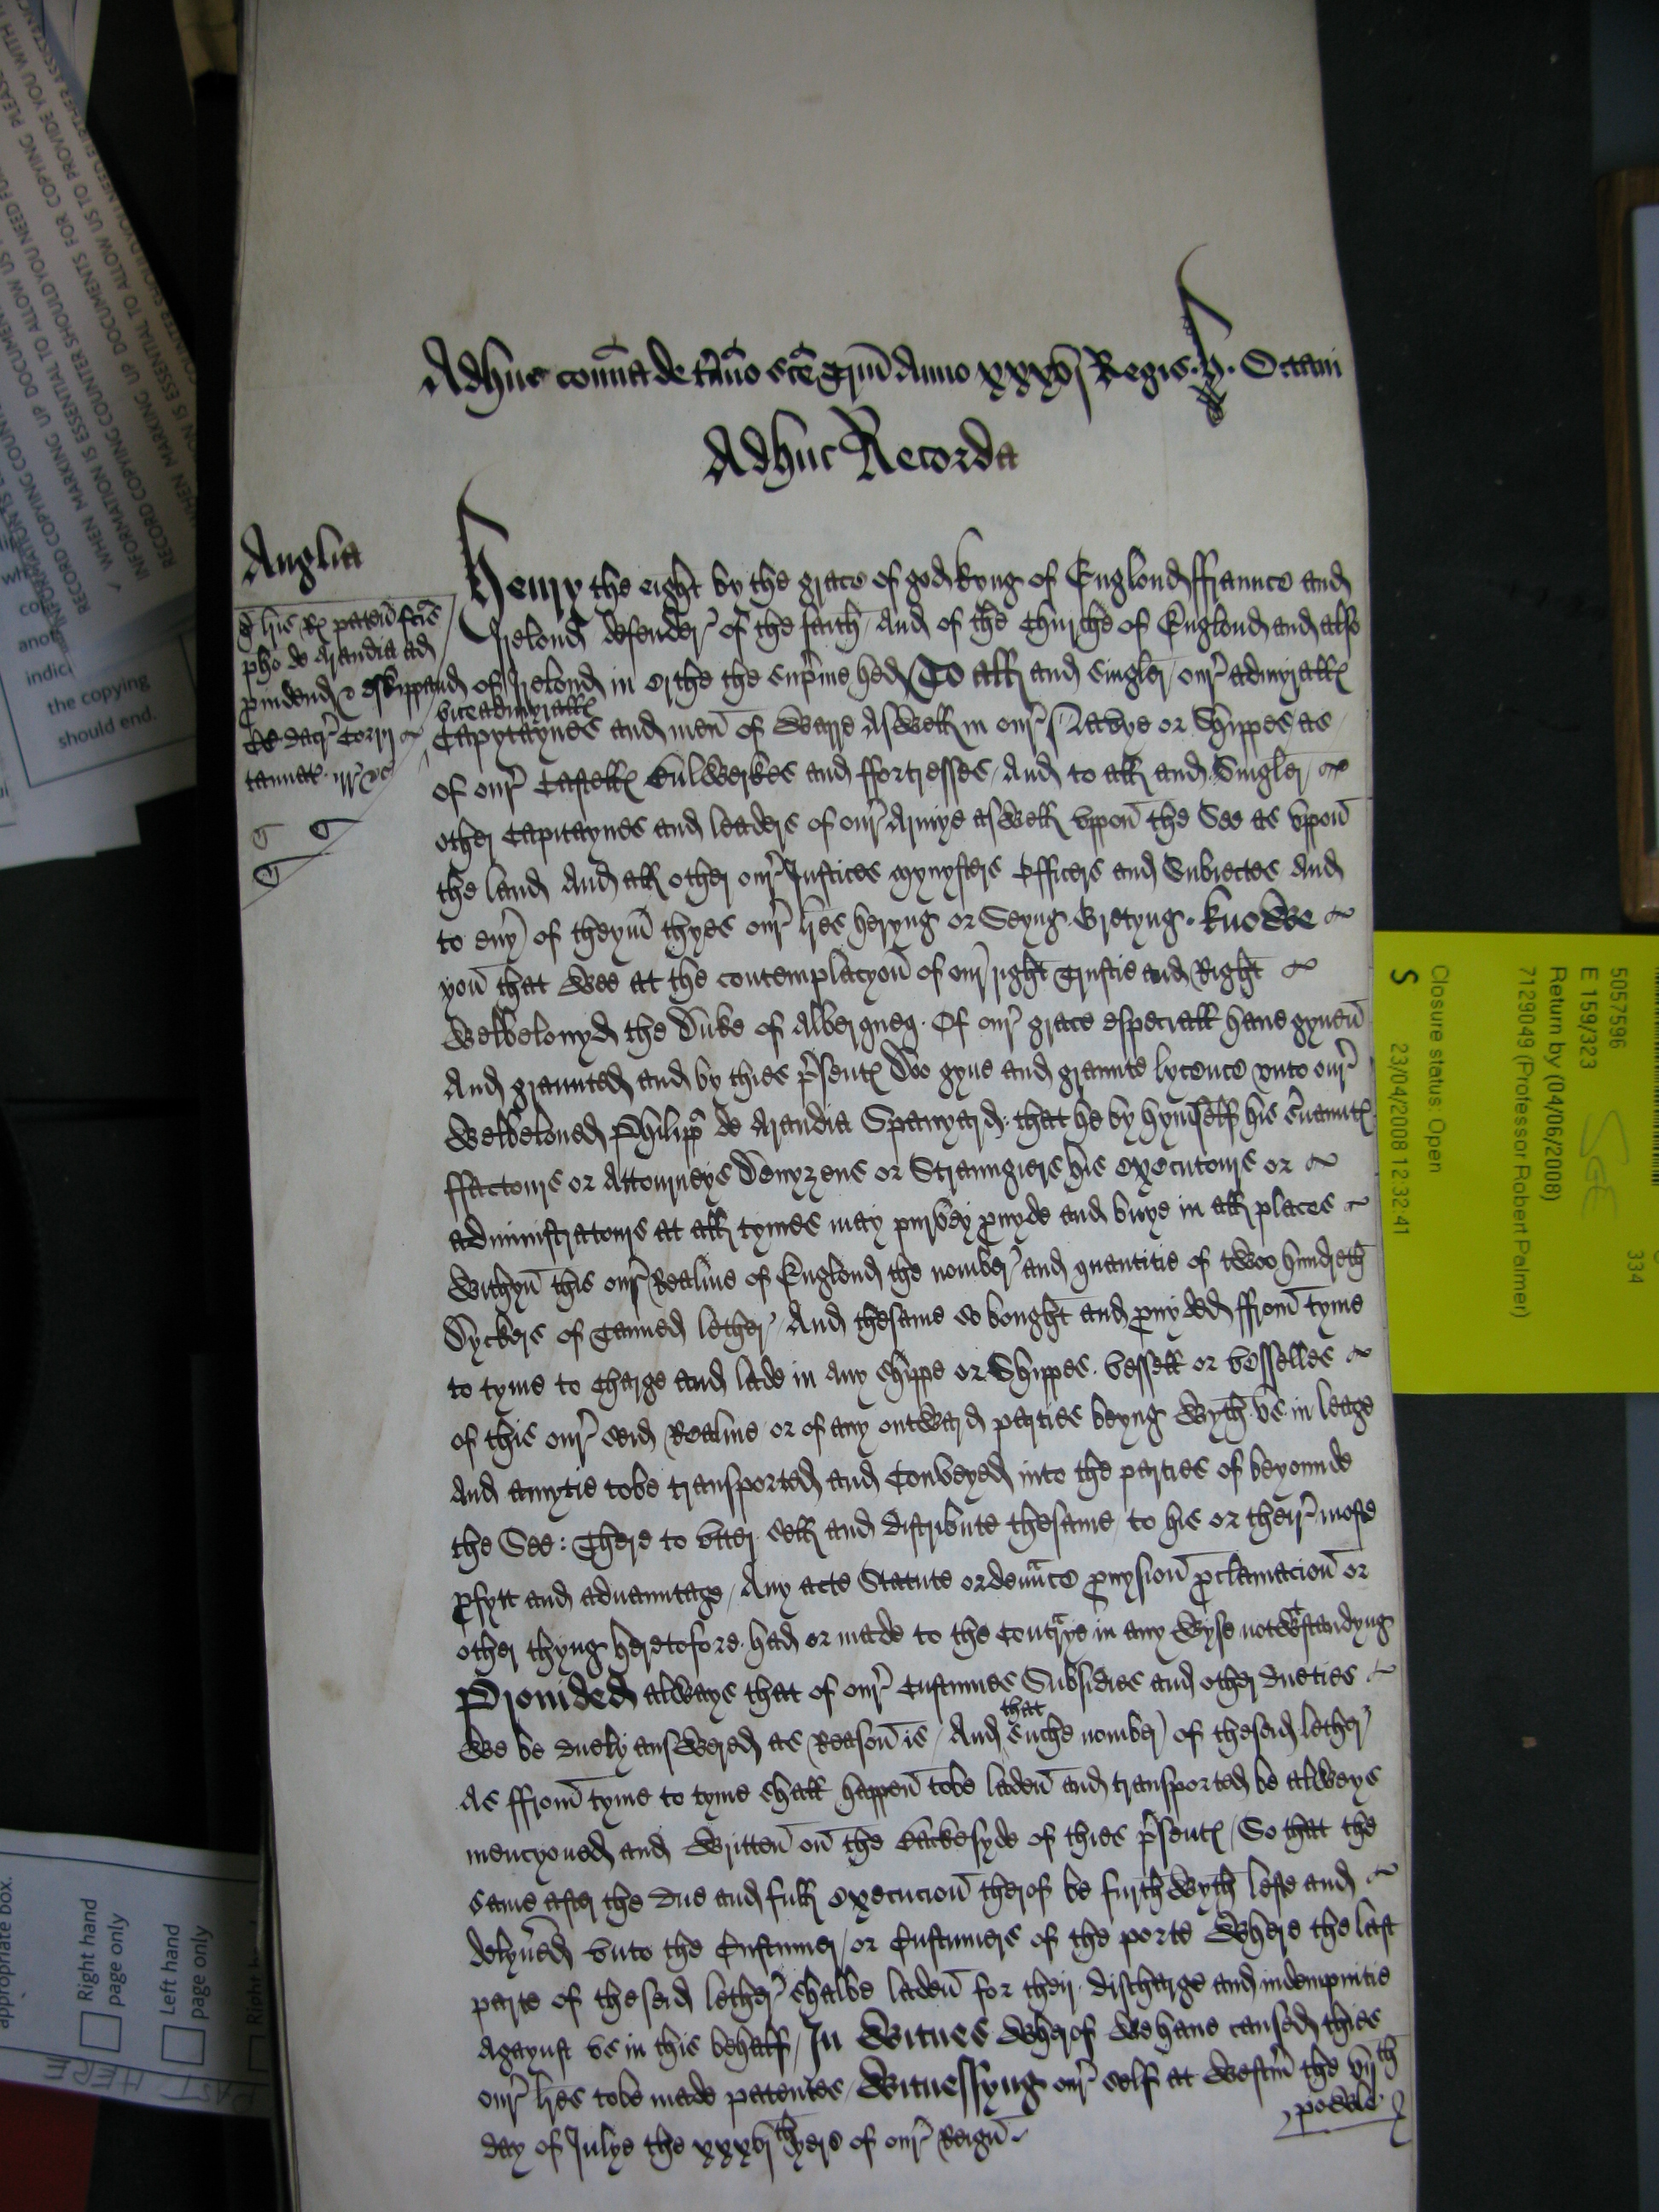 Adhuc coïa de tïno scē Trīn Anno xxxvj Regis .h. Octavi
Adhuc Recorda
Anglia
de lrīs Rx patent fcīs
pho de Arandia ad
tannat
Henry the eight by the grace of god kyng of Englond ffraunce and
Irelond defender of the faith And of the Churche of Englond and also
of Irelond in erthe the supreme hed To all and singler our admyralles
viceadmyralles
Capytaynes and men of warre Aswell in our Navye or Shippes as
of our Castelles Bulwerkes and ffortresses And to all and Singler
other Capitaynes and leaders of our Armye aswell uppon the See as upon
the land And all other our Justices mynysters Officers and Subiectes And
to eny of theym thyes our lres heryng or Seyng Gretyng. knowe
you that wee at the contemplacyon of our right trustie and Right
welbelouyd the Duke of Alberqueq. Of our grace especiall haue gyuen
And graunted and by thies psentes Doo gyue and graunte lycence unto our
welbeloued Philipp de Arandia Spanyard that he by hymself his seruauntes
ffactours or Attourneys Denyzens or Straungiers his executours or
administratours at all tymes may purvey prouyde and buye in all places
withyn this our Realme of Englond the nomber and quantitie of twoo hundreth
Dyckers of Tanned lether And thesame so bought and prouyded ffrom tyme
to tyme to charge and lade in any shippe or Shippes vessell or vessellles
of this our seid Realme or of any outward parties beyng wyth vs in leage
And amytie tobe transported and Conveyed into the parties of beyounde
the See : There to vtter sell and distribute thesame to his or their moste
pfytt and aduauntage Any acte Statute ordenance prouysion proclamacion or
other thyng heretofore had or made to the contrarye in any wyse notwtstandyng
Prouided always that of our Custumes Subsidies and other dueties
We be duely answered as Reason is And that suche nomber of theseid lether
As ffrom tyme to tyme shall happen tobe laden and transported be alweys
mencyoned and written on the backesyde of thies psentes So that the
same after the due and full execucion therof be furthwyth lefte and
delyuered unto the Custumer or Custumers of the porte where the last
parte of theseid lether shalbe laden for their discharge and indempnitie
Agaynst vs in this behalf In witnes wherof we haue caused thies
our lres tobe made patentes Witnessyng our self at westm the vijth
day of Julye the xxxvith yere of our Reign
powle
5057596
E 159/323
334
SGE
Return by (04/06/2008)
7129049 (Professor Robert Palmer)
Closure status: Open
S 23/04/2008 12:32:41
the copying
should end.
appropriate box.
Right hand
page only
Left hand
page only
PAST HERE